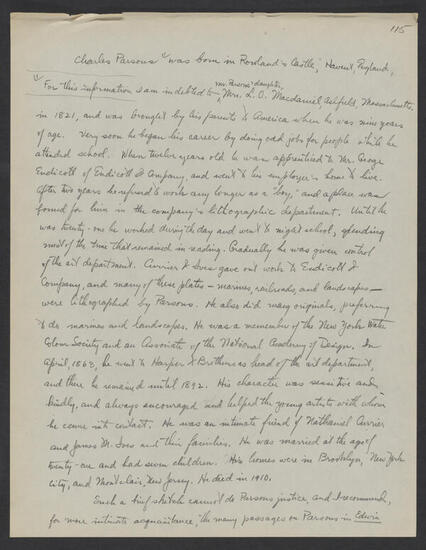 115
Charles Parsons (1) was born in Rowland's Castle, Havent, England,
(1) For this information I am indebted to Mr. Parsons' daughter, Mrs. L. O. Macdaniel, Ashfield, Massachusetts.
in 1821, and was brought by his parents to America when he was nine years
of age. Very soon he began his career by doing odd jobs for people while he
attended school. When twelve years old he was apprenticed to Mr. George
Endicott of Endicott & Company, and went to his employer's home to live.
After two years he refused to work any longer as a "boy," and a place was
found for him in the company's lithographic department. Until he
was twenty-one he worked during the day and went to night school, spending
most of the time that remained in reading. Gradually he was given control
of the art department. Currier & Ives gave out work to Endicott &
Company, and many of these plates – marines, railroads, and landscapes –
were lithographed by Parsons. He also did many originals, preferring
to do marines and landscapes. He was a memember of the New York Water
Color Society and an Associate of the National Academy of Design. In
April, 1863, he went to Harper & Brothers as head of the art department,
and there he remained until 1892. His character was sensitive and
kindly, and always encouraged and helped the young artists with whom
he came into contact. He was an intimate friend of Nathaniel Currier
and James M. Ives and their families. He was married at the age of
twenty-one and had seven children. His homes were in Brooklyn, New York
City, and Montclair, New Jersey. He died in 1910.
Such a brief sketch cannot do Parsons justice and I recommend,
for more intimate acquaintance, the many passages on Parsons in Edwin